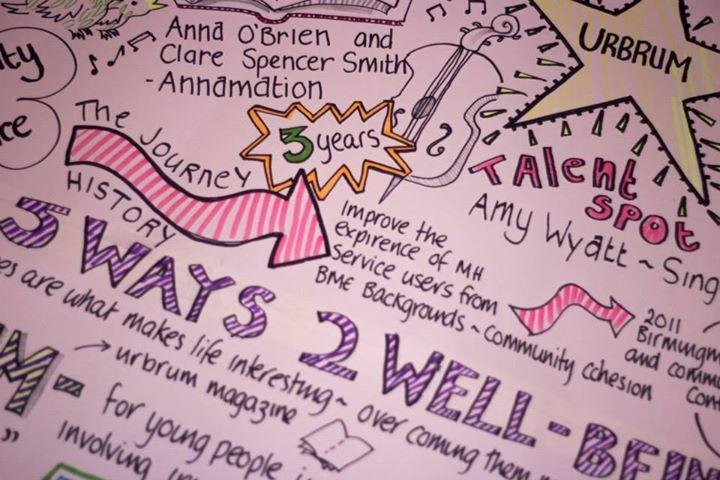 Anna O'Brien and
Clare Spencer Smith
- Annamation
URBRUM
ity
ce
The Journey
HISTORY
3 years
TAlent
Spot
Amy Wyatt ~ Sing
Improve the
expirence of MH
Service users from
BME Backgrounds ~ Community Cohesion
2011
Birmingm
and comm
Con
5 WAYS 2 WELL-BEIN
es are what makes life interesting ~ over coming them
→ urbrum magazine
M - for young people
"
involving